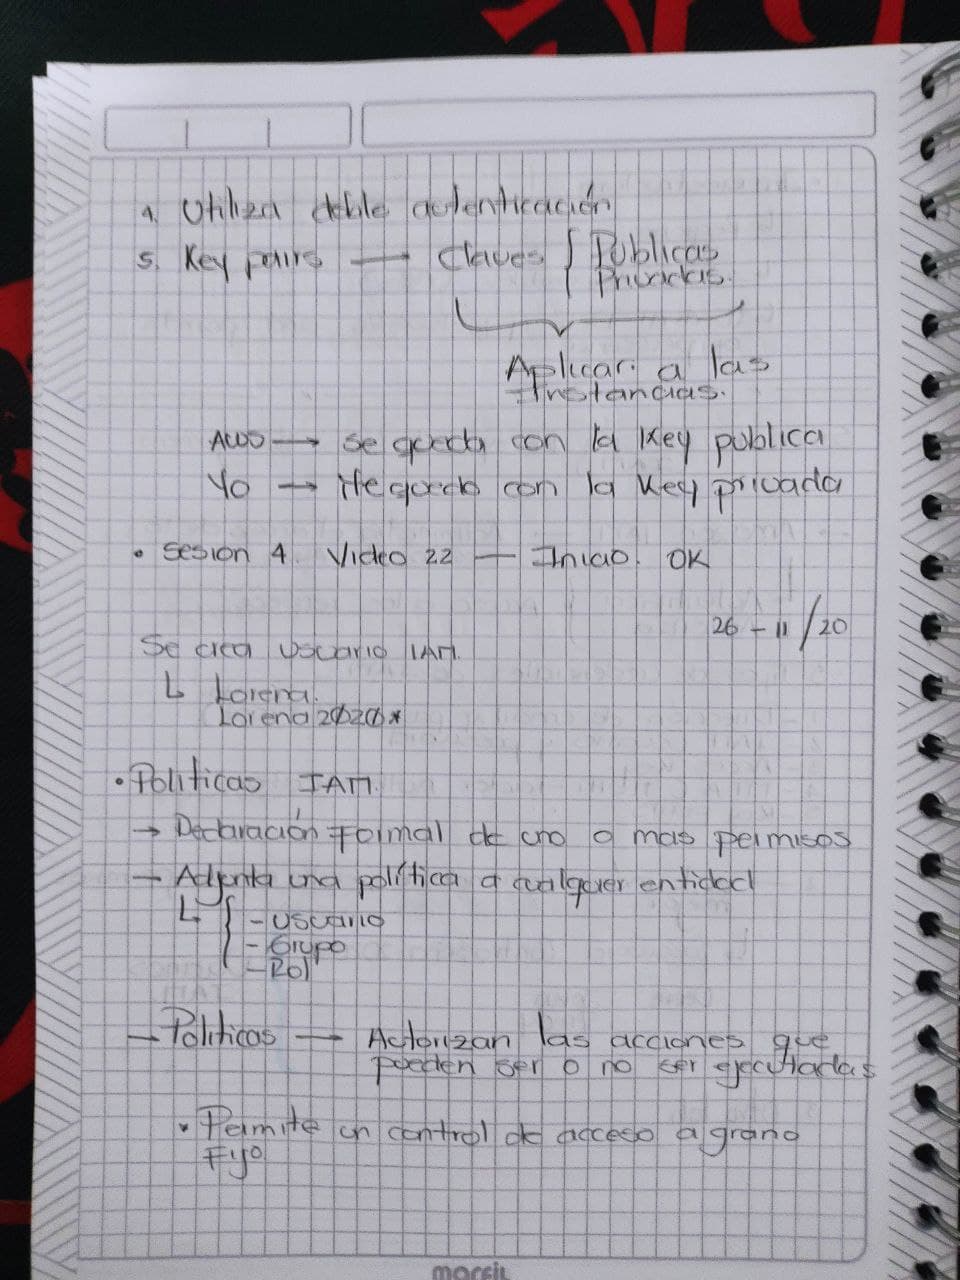 4. Utiliza doble autenticación
5. Key pairs → Claves { Publicas
Privadas.
Aplicar a las
Instancias.
AWS → se queda con la Key publica
Yo → Me quedo con la Key privada
• Sesion 4. Video 22 — Inicio. OK
26 - 11 / 20
Se crea usuario IAM.
↳ Lorena.
Lorena2020*
• Politicas IAM.
→ Declaración Formal de uno o mas permisos
→ Adjunta una política a cualquier entidad
↳ { - Usuario
- Grupo
- Rol
→ Politicas → Autorizan las acciones que
pueden ser o no ser ejecutadas
• Permite un control de acceso a grano
Fijo
marfil